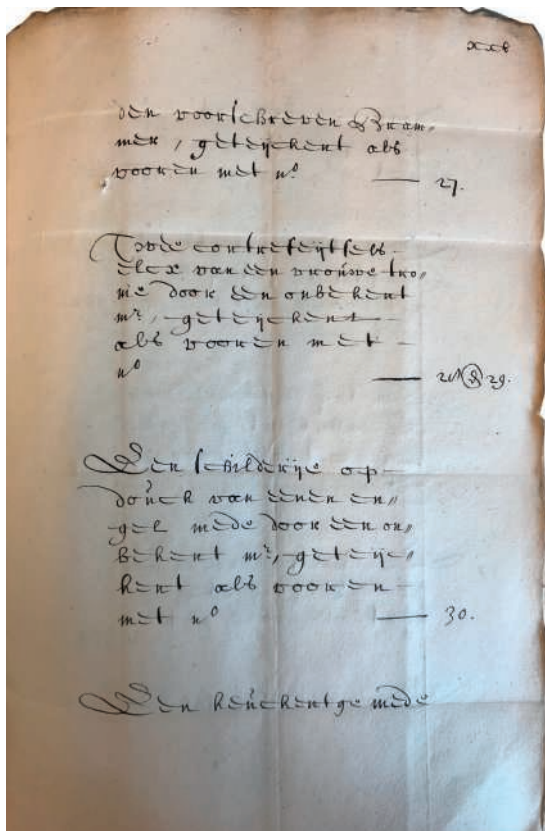 xxv
den voorschreven Bram„
mer, geteijckent als
vooren met no — 27.
Twee contrefeijtsels
elcx van een vrouwe tro„
nie door een onbekent
mr, geteijckent
als vooren met
no — 28 & 29.
Een schilderije op
douck van eenen en„
gel mede door een on„
bekent mr, geteijc„
kent als vooren
met no — 30.
Een keuckentge mede